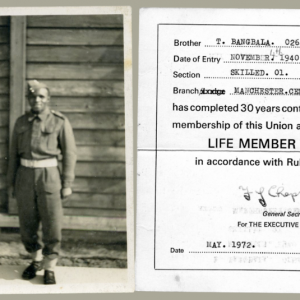 Brother T. BANGBALA. 026
Date of Entry NOVEMBER. 4th 1940
Section SKILLED. 01.
Branch/ MANCHESTER.CEN
has completed 30 years cont
membership of this Union a
LIFE MEMBER
in accordance with Ru
General Secr
For THE EXECUTIVE
Date MAY. 1972.